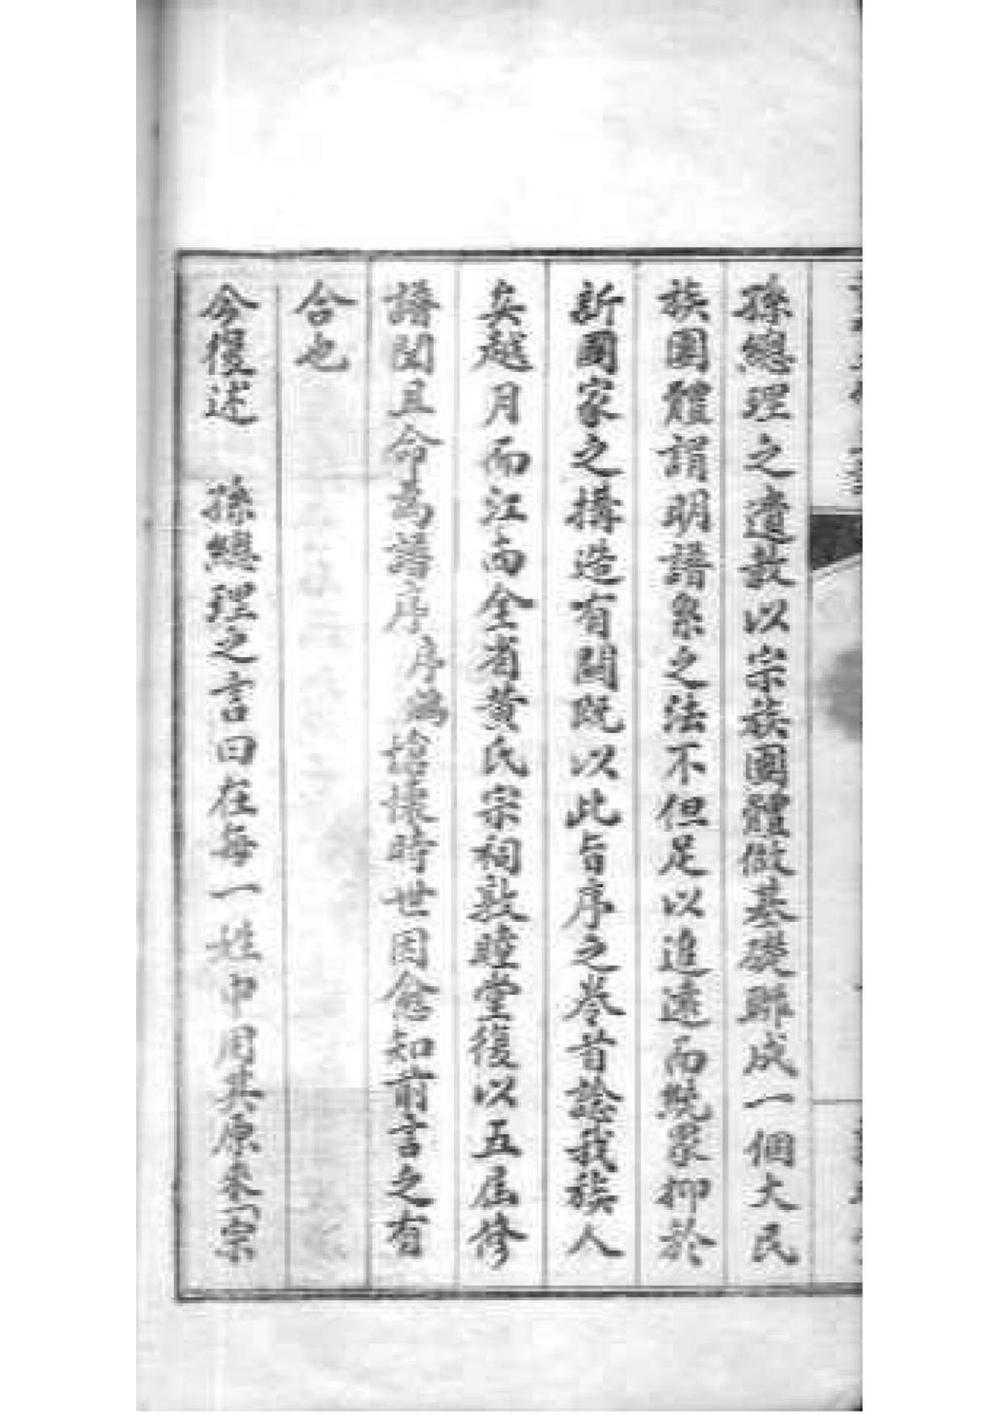 孫總理之遺教以宗族團體做基礎聯成一個大民
族團體謂明譜系之法不但足以追遠而統眾抑於
新國家之搆造有關既以此旨序之卷首諗我族人
矣越月而江西全省黃氏宗祠敦睦堂復以五届修
譜聞且命為譜序序為愴懷時世因愈知前言之有
合也
今復述 孫總理之言曰在每一姓中用其原來「宗